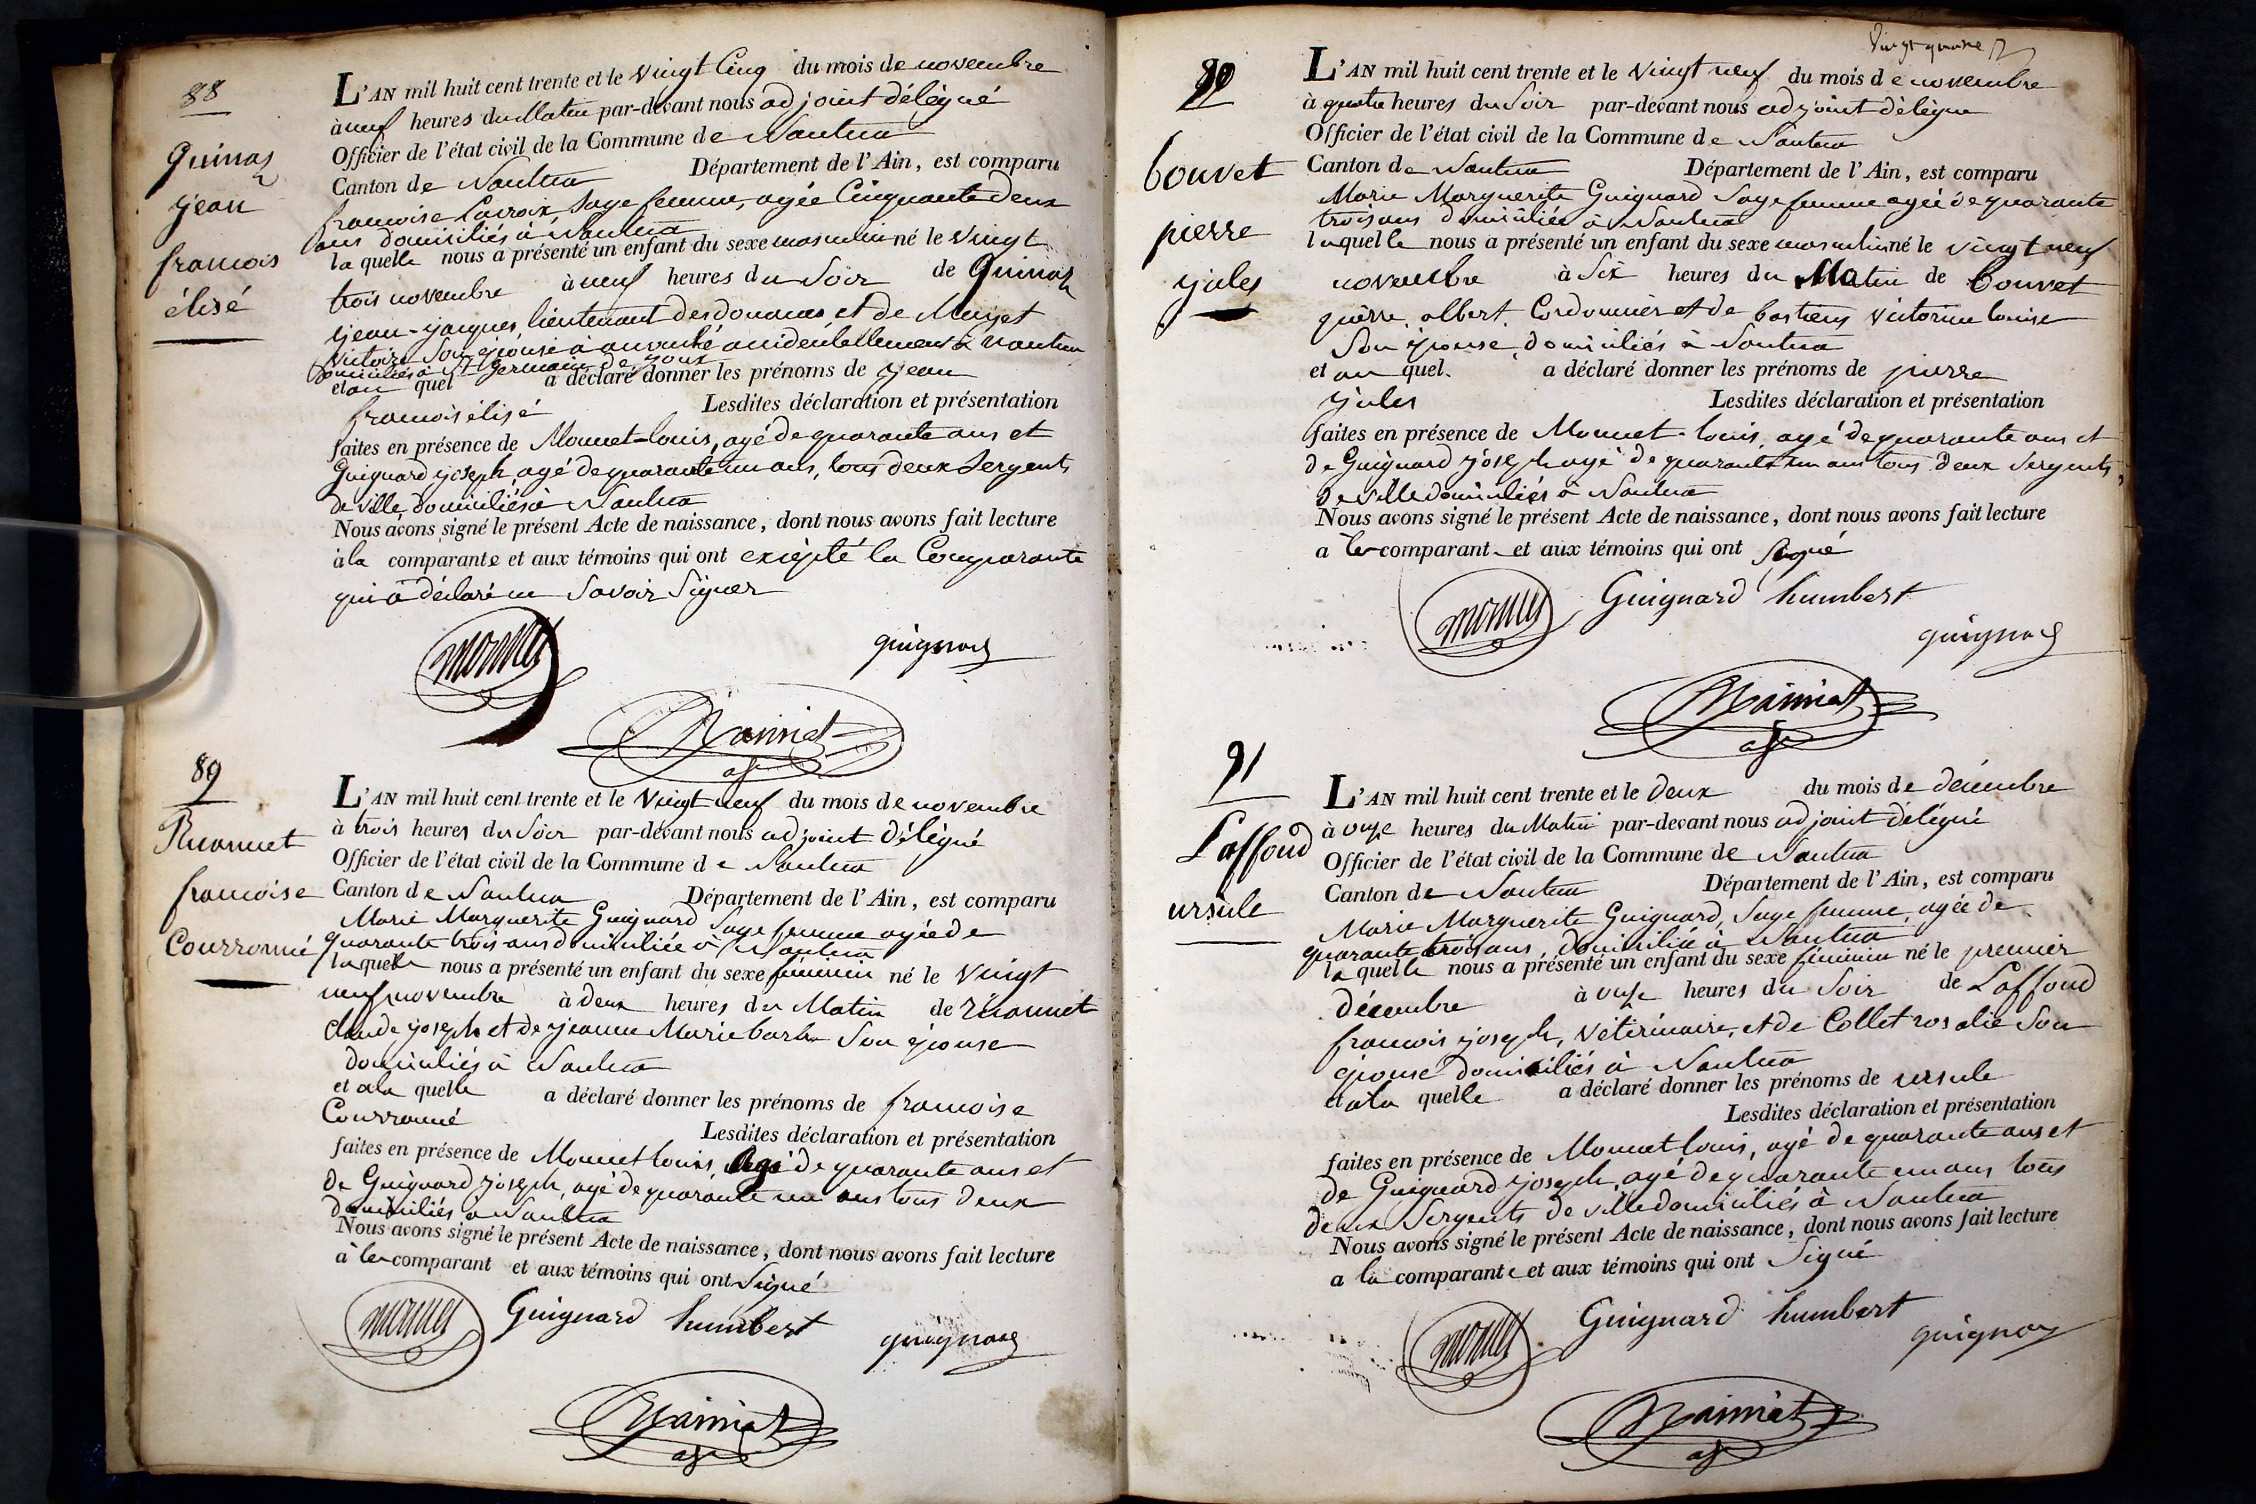 88
Quinaz
jean
francois
élisé
L'AN mil huit cent trente et le vingt Cinq du mois de novembre
à neuf heures du Matin par-devant nous adjoint délégué
Officier de l'état civil de la Commune de Nantua
Canton de Nantua Département de l'Ain, est comparu
francoise Lacroix, Sage femme, agée Cinquante deux
ans domiciliés à Nantua
la quelle nous a présenté un enfant du sexe masculin né le vingt
trois novembre à neuf heures du Soir de Quinaz
jean-jacques, lieutenant des douanes et de
victoire Son épouse à accouché accidentellement à nantua
domiciliés à St germain de joux
et au quel a déclaré donner les prénoms de jean
francois élisé Lesdites déclaration et présentation
faites en présence de Monnet-louis, agé de quarante ans et
Guignard joseph, agé de quarante un ans, tous deux Sergents
de ville, domiciliés à Nantua
Nous avons signé le présent Acte de naissance, dont nous avons fait lecture
à la comparante et aux témoins qui ont exiepté la Comparante
qui a déclaré ne Savoir Signer
monnet
guignard
89
Ruonnet
francoise
Courronné
L'AN mil huit cent trente et le vingt neuf du mois de novembre
à trois heures du Soir par-devant nous adjoint délégué
Officier de l'état civil de la Commune de Nantua
Canton de Nantua Département de l'Ain, est comparu
Marie Marguerite Guignard Sage femme agée de
quarante trois ans domiciliée à Nantua
la quelle nous a présenté un enfant du sexe féminin né le vingt
neuf novembre à deux heures du Matin de
claude joseph et de jeanne Marie barbe Son épouse
domiciliés à Nantua
et a la quelle a déclaré donner les prénoms de francoise
Courronné Lesdites déclaration et présentation
faites en présence de Monnet louis, Agé de quarante ans et
de Guignard joseph, agé de quarante un ans tous deux
domiciliés a Nantua
Nous avons signé le présent Acte de naissance, dont nous avons fait lecture
à le comparant et aux témoins qui ont Signé
monnet Guignard humbert
guignard
90
bouvet
pierre
jules
L'AN mil huit cent trente et le vingt neuf du mois de novembre
à quatre heures du Soir par-devant nous adjoint délégué
Officier de l'état civil de la Commune de Nantua
Canton de Nantua Département de l'Ain, est comparu
Marie Marguerite Guignard Sage femme agée de quarante
trois ans domiciliée à Nantua
laquelle nous a présenté un enfant du sexe masculin né le vingt neuf
novembre à Six heures du Matin de bouvet
pierre albert Cordonnier et de bastiens victorine louise
Son épouse, domiciliés à Nantua
et au quel a déclaré donner les prénoms de pierre
jules Lesdites déclaration et présentation
faites en présence de Monnet-louis, agé de quarante ans et
de Guignard joseph agé de quarante un ans tous deux Sergents
de ville domiciliés à Nantua
Nous avons signé le présent Acte de naissance, dont nous avons fait lecture
a le comparant et aux témoins qui ont Signé
monnet Guignard humbert
guignard
91
Laffond
ursule
L'AN mil huit cent trente et le deux du mois de décembre
à onze heures du Matin par-devant nous adjoint délégué
Officier de l'état civil de la Commune de Nantua
Canton de Nantua Département de l'Ain, est comparu
Marie Marguerite Guignard, Sage femme, agée de
quarante trois ans, domiciliée à Nantua
la quelle nous a présenté un enfant du sexe féminin né le premier
décembre à onze heures du Soir de Laffond
francois joseph, vétérinaire, et de Collet rosalie Son
épouse domiciliés à Nantua
et a la quelle a déclaré donner les prénoms de ursule
Lesdites déclaration et présentation
faites en présence de Monnet louis, agé de quarante ans et
de Guignard joseph, agé de quarante un ans tous
deux Sergents de ville domiciliés à Nantua
Nous avons signé le présent Acte de naissance, dont nous avons fait lecture
a la comparante et aux témoins qui ont Signé
monnet Guignard humbert
guignard